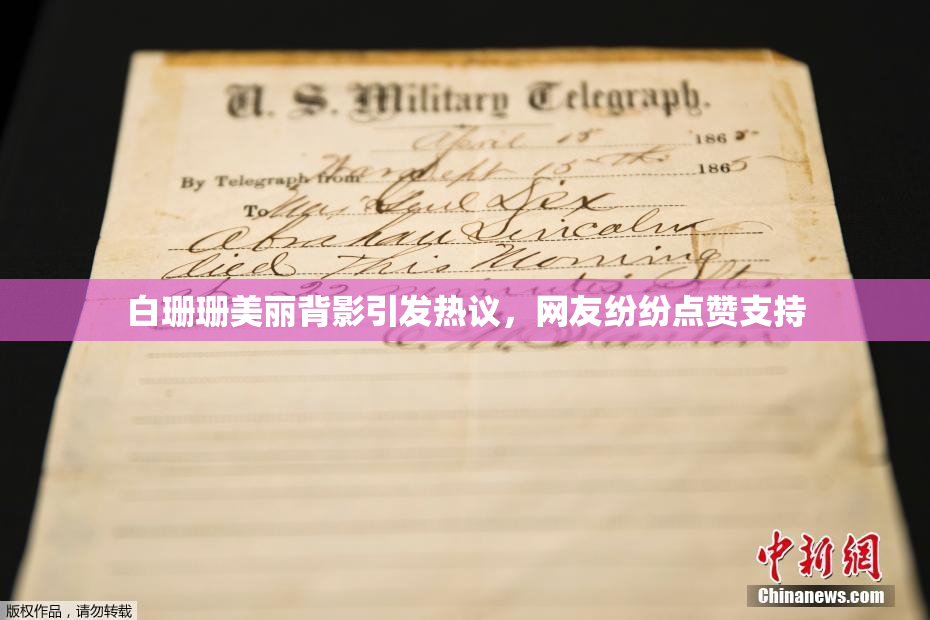 U. S. Military Telegraph.
April 15 1865
By Telegraph from War Dept 15th 1865
To Maj Genl Dix
Abraham Lincoln
died This Morning
22 minutes after
白珊珊美丽背影引发热议，网友纷纷点赞支持
E. M. Stanton
中新网
Chinanews.com
版权作品，请勿转载